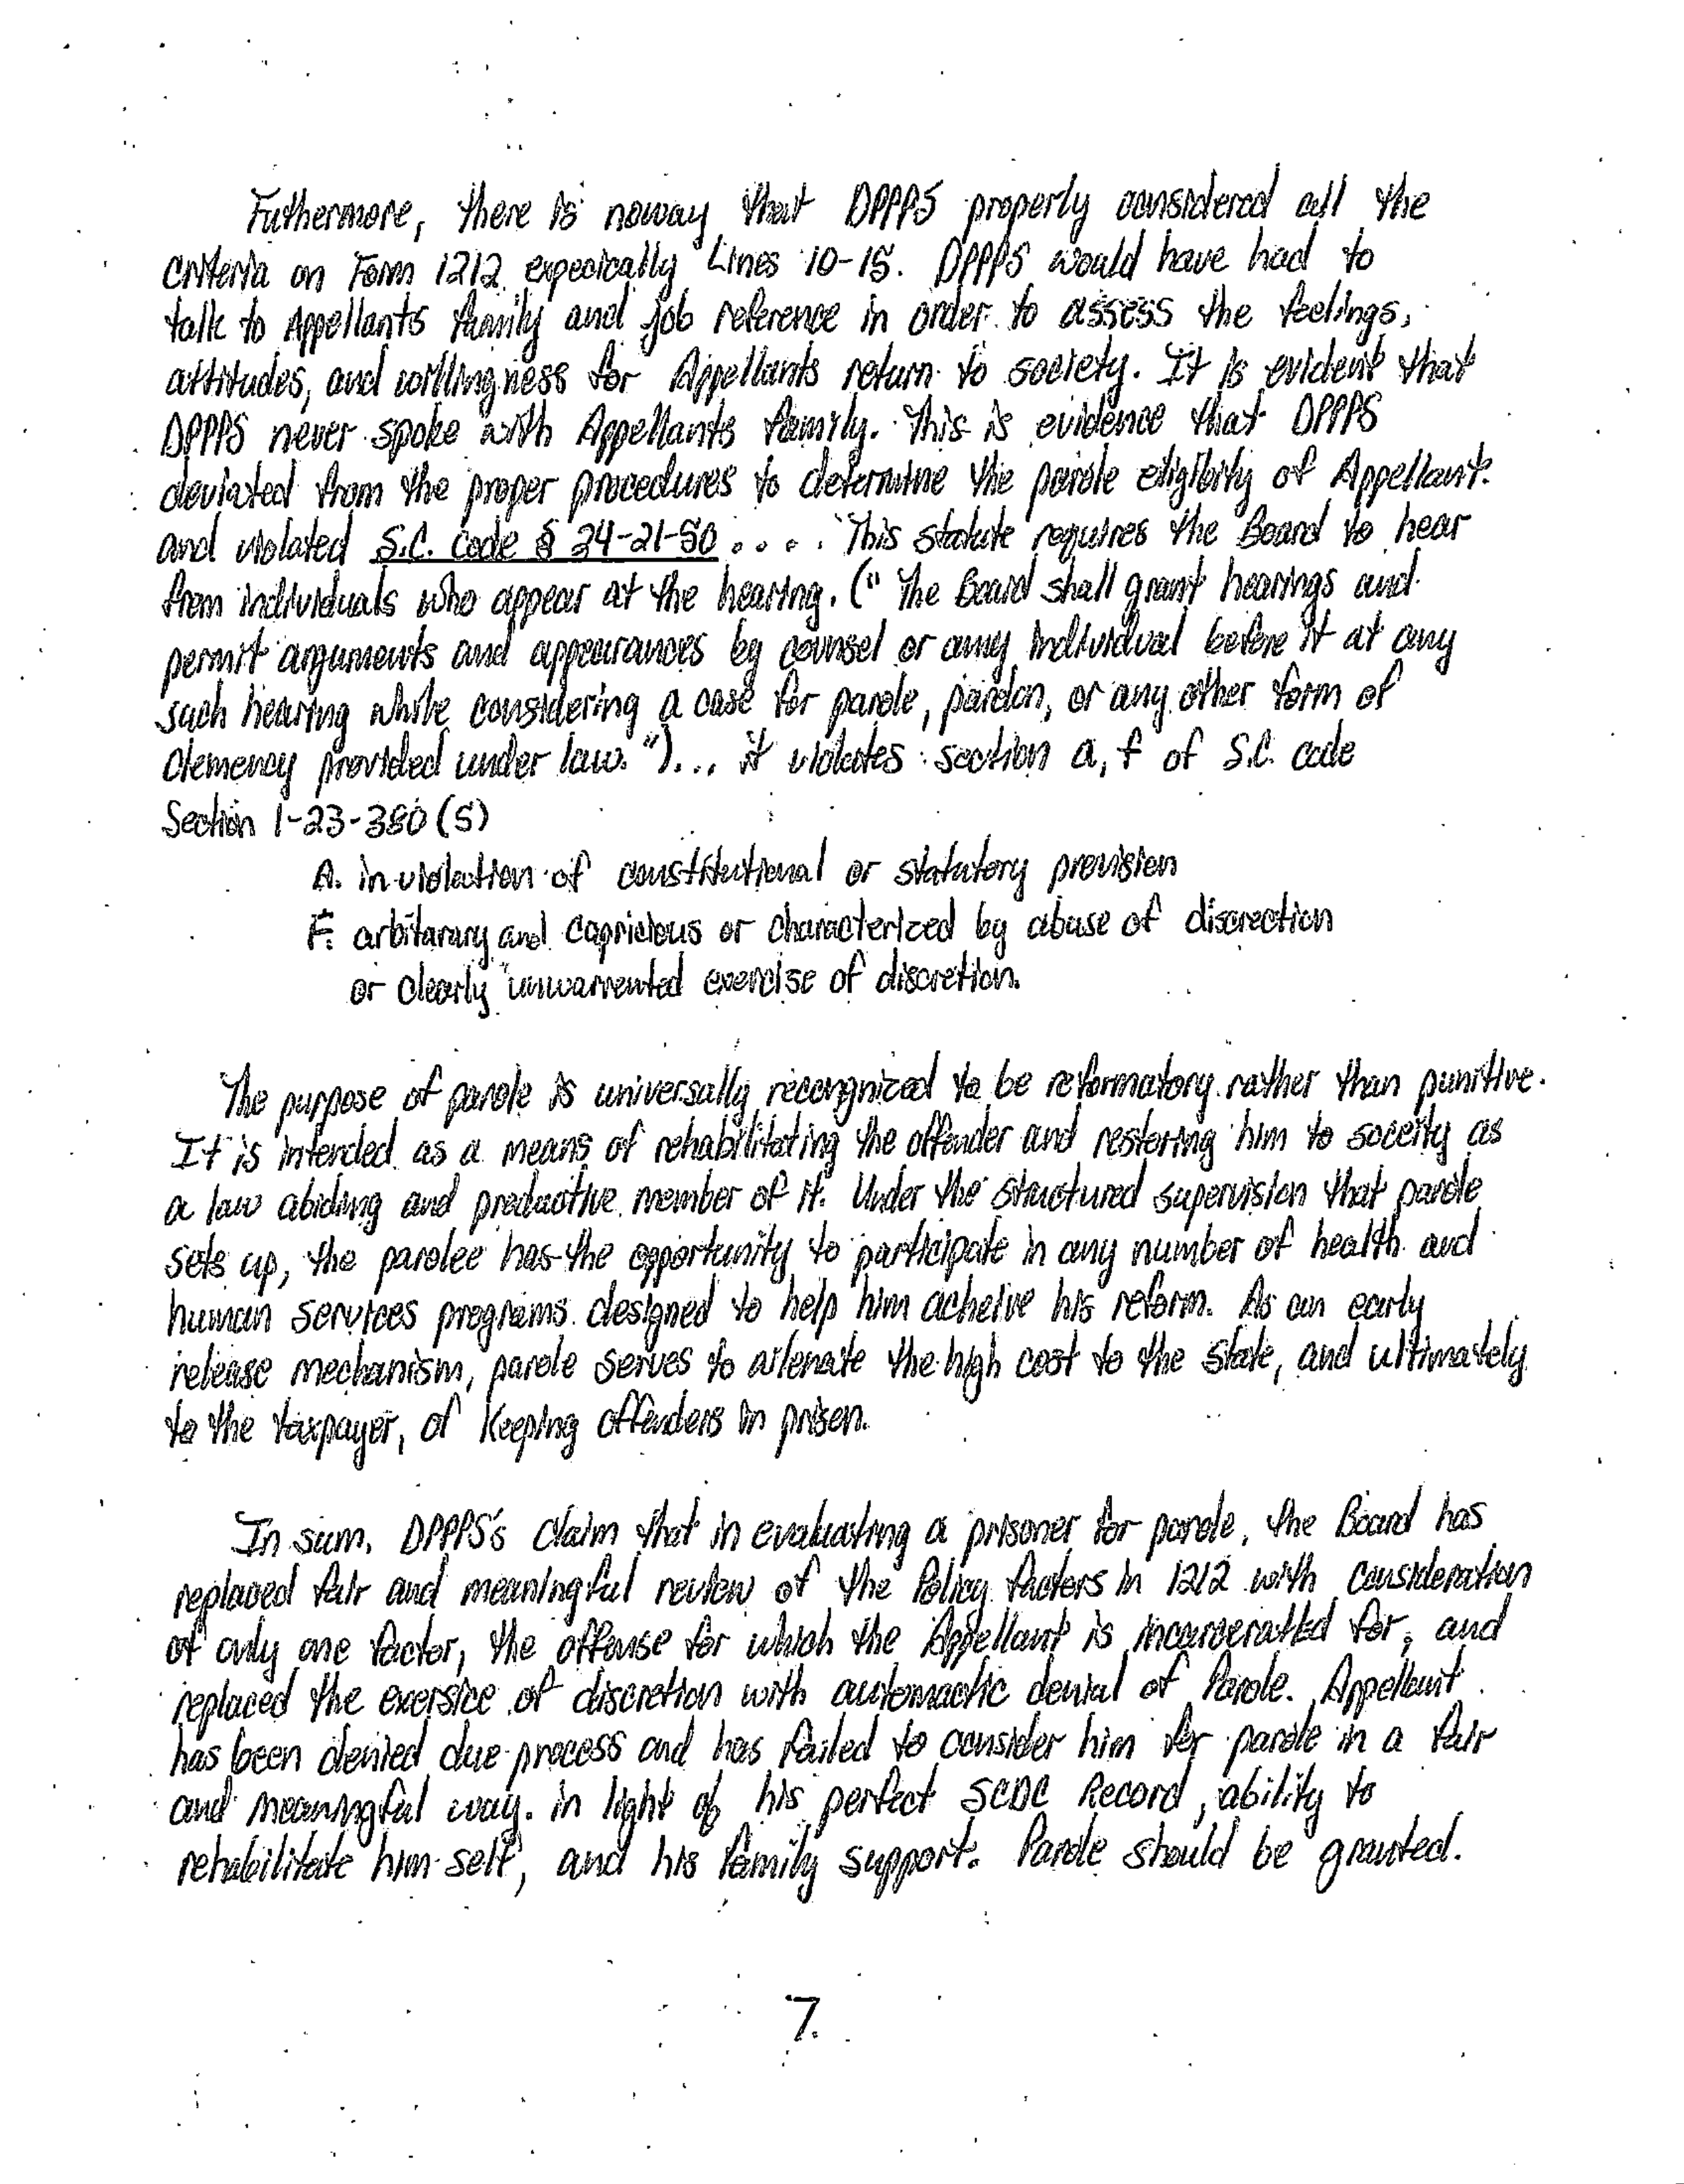 Futhermore, there is noway that DPPPS properly considered all the
criteria on Form 1212 expecically Lines 10-15. DPPPS would have had to
talk to Appellants family and job reference in order to assess the feelings,
attitudes, and willingness for Appellants return to society. It is evident that
DPPPS never spoke with Appellants family. This is evidence that DPPPS
deviated from the proper procedures to determine the parole eligibity of Appellant.
and violated S.C. code § 24-21-50 .... This statute requires the Board to hear
from individuals who appear at the hearing. ("The Board shall grant hearings and
permit arguments and appearances by counsel or any individual before it at any
such hearing while considering a case for parole, pardon, or any other form of
clemency provided under law.")... it violates: section a, f of S.C. code
Section 1-23-380 (5)
A. in violation of constitutional or statutory provision
F. arbitarary and capricious or characterized by abuse of discrection
or clearly unwarrented exercise of discretion.
The purpose of parole is universally recorgnized to be reformatory rather than punitive.
It is intended as a means of rehabilitating the offender and restoring him to soceity as
a law abiding and productive member of it. Under the structured supervision that parole
sets up, the parolee has the opportunity to participate in any number of health and
human services programs designed to help him acheive his reform. As an early
release mechanism, parole serves to alleniate the high cost to the State, and ultimately
to the taxpayer, of keeping offenders in prison.
In sum, DPPPS's claim that in evaluating a prisoner for parole, the Board has
replaced fair and meaningful review of the Policy factors in 1212 with consideration
of only one factor, the offense for which the Appellant is incarceratted for, and
replaced the exersice of discretion with automactic denial of Parole. Appellant
has been denied due process and has failed to consider him for parole in a fair
and meaningful way. in light of his perfect SCDC Record, ability to
rehabilitate him self, and his family support. Parole should be granted.
7.